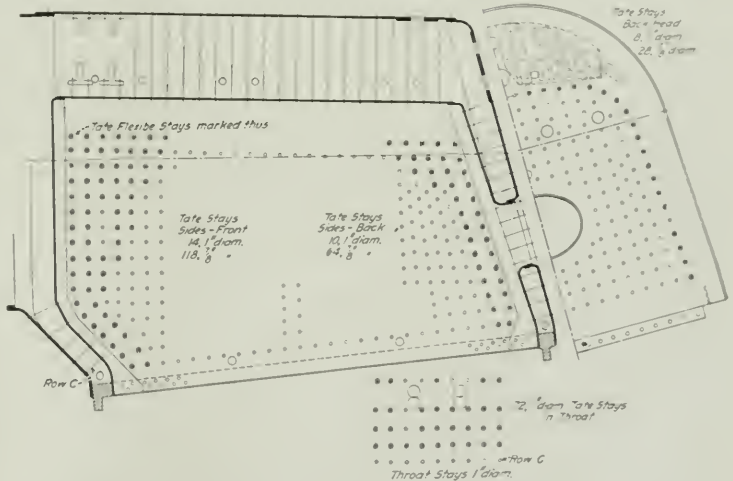 Tate Stays
Back Head
8, 1" diam
28, 7/8 diam
Tate Flexibe Stays marked thus
Tate Stays
Sides - Front
14, 1" diam.
118, 7/8 "
Tate Stays
Sides - Back
10, 1" diam.
64, 7/8 "
Row C
72, " diam Tate Stays
in Throat
Row C
Throat Stays 1" diam.